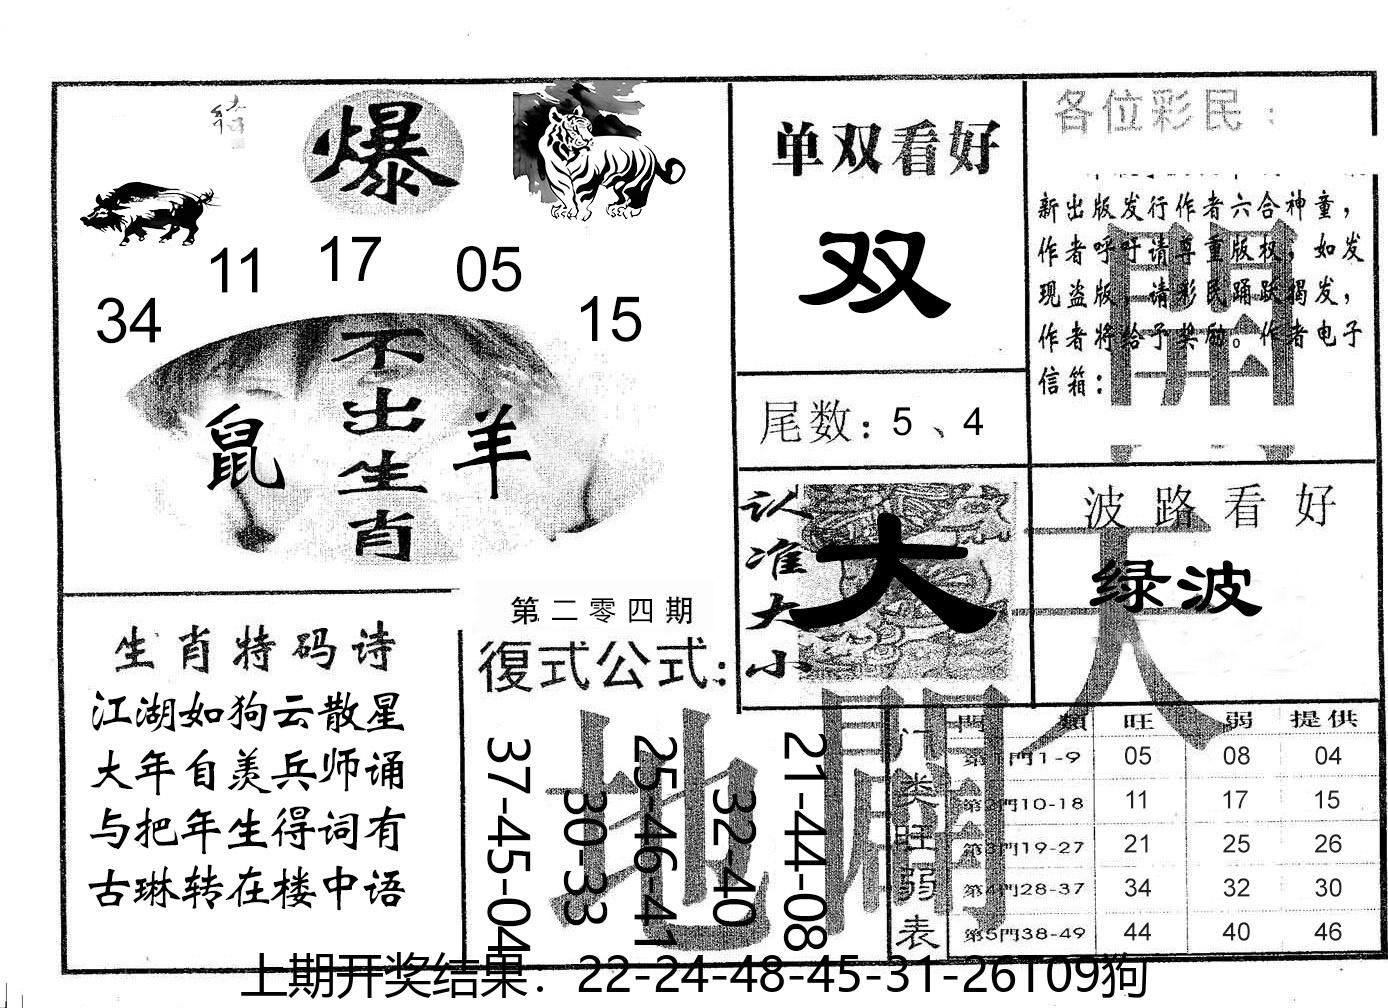 爆
11 17 05
34 15
不出生肖
鼠 羊
单双看好
双
尾数：5、4
各位彩民：
新出版发行作者六合神童，
作者呼吁请尊重版权，如发
现盗版，请彩民踊跃揭发，
作者将给予奖励。作者电子
信箱：
開
认准大小
大
波路看好
绿波
天
生肖特码诗
江湖如狗云散星
大年自羡兵师诵
与把年生得词有
古琳转在楼中语
第二零四期
復式公式：
37-45-04
30-33
25-46-41
32-40
21-44-08
地
開
门类旺弱表
門類 旺 弱 提供
第1門1-9 05 08 04
第2門10-18 11 17 15
第3門19-27 21 25 26
第4門28-37 34 32 30
第5門38-49 44 40 46
上期开奖结果：22-24-48-45-31-26T09狗